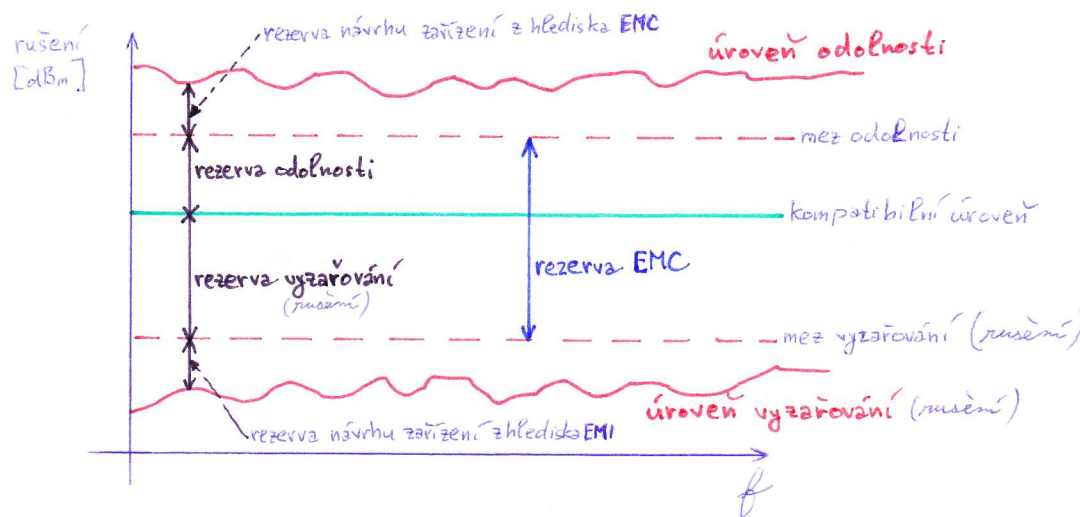 rušení
[dBm]
rezerva návrhu zařízení z hlediska EMC
úroveň odolnosti
mez odolnosti
rezerva odolnosti
kompatibilní úroveň
rezerva EMC
rezerva vyzařování
(rušění)
mez vyzařování (rušění)
úroveň vyzařování (rušění)
rezerva návrhu zařízení z hlediska EMI
f